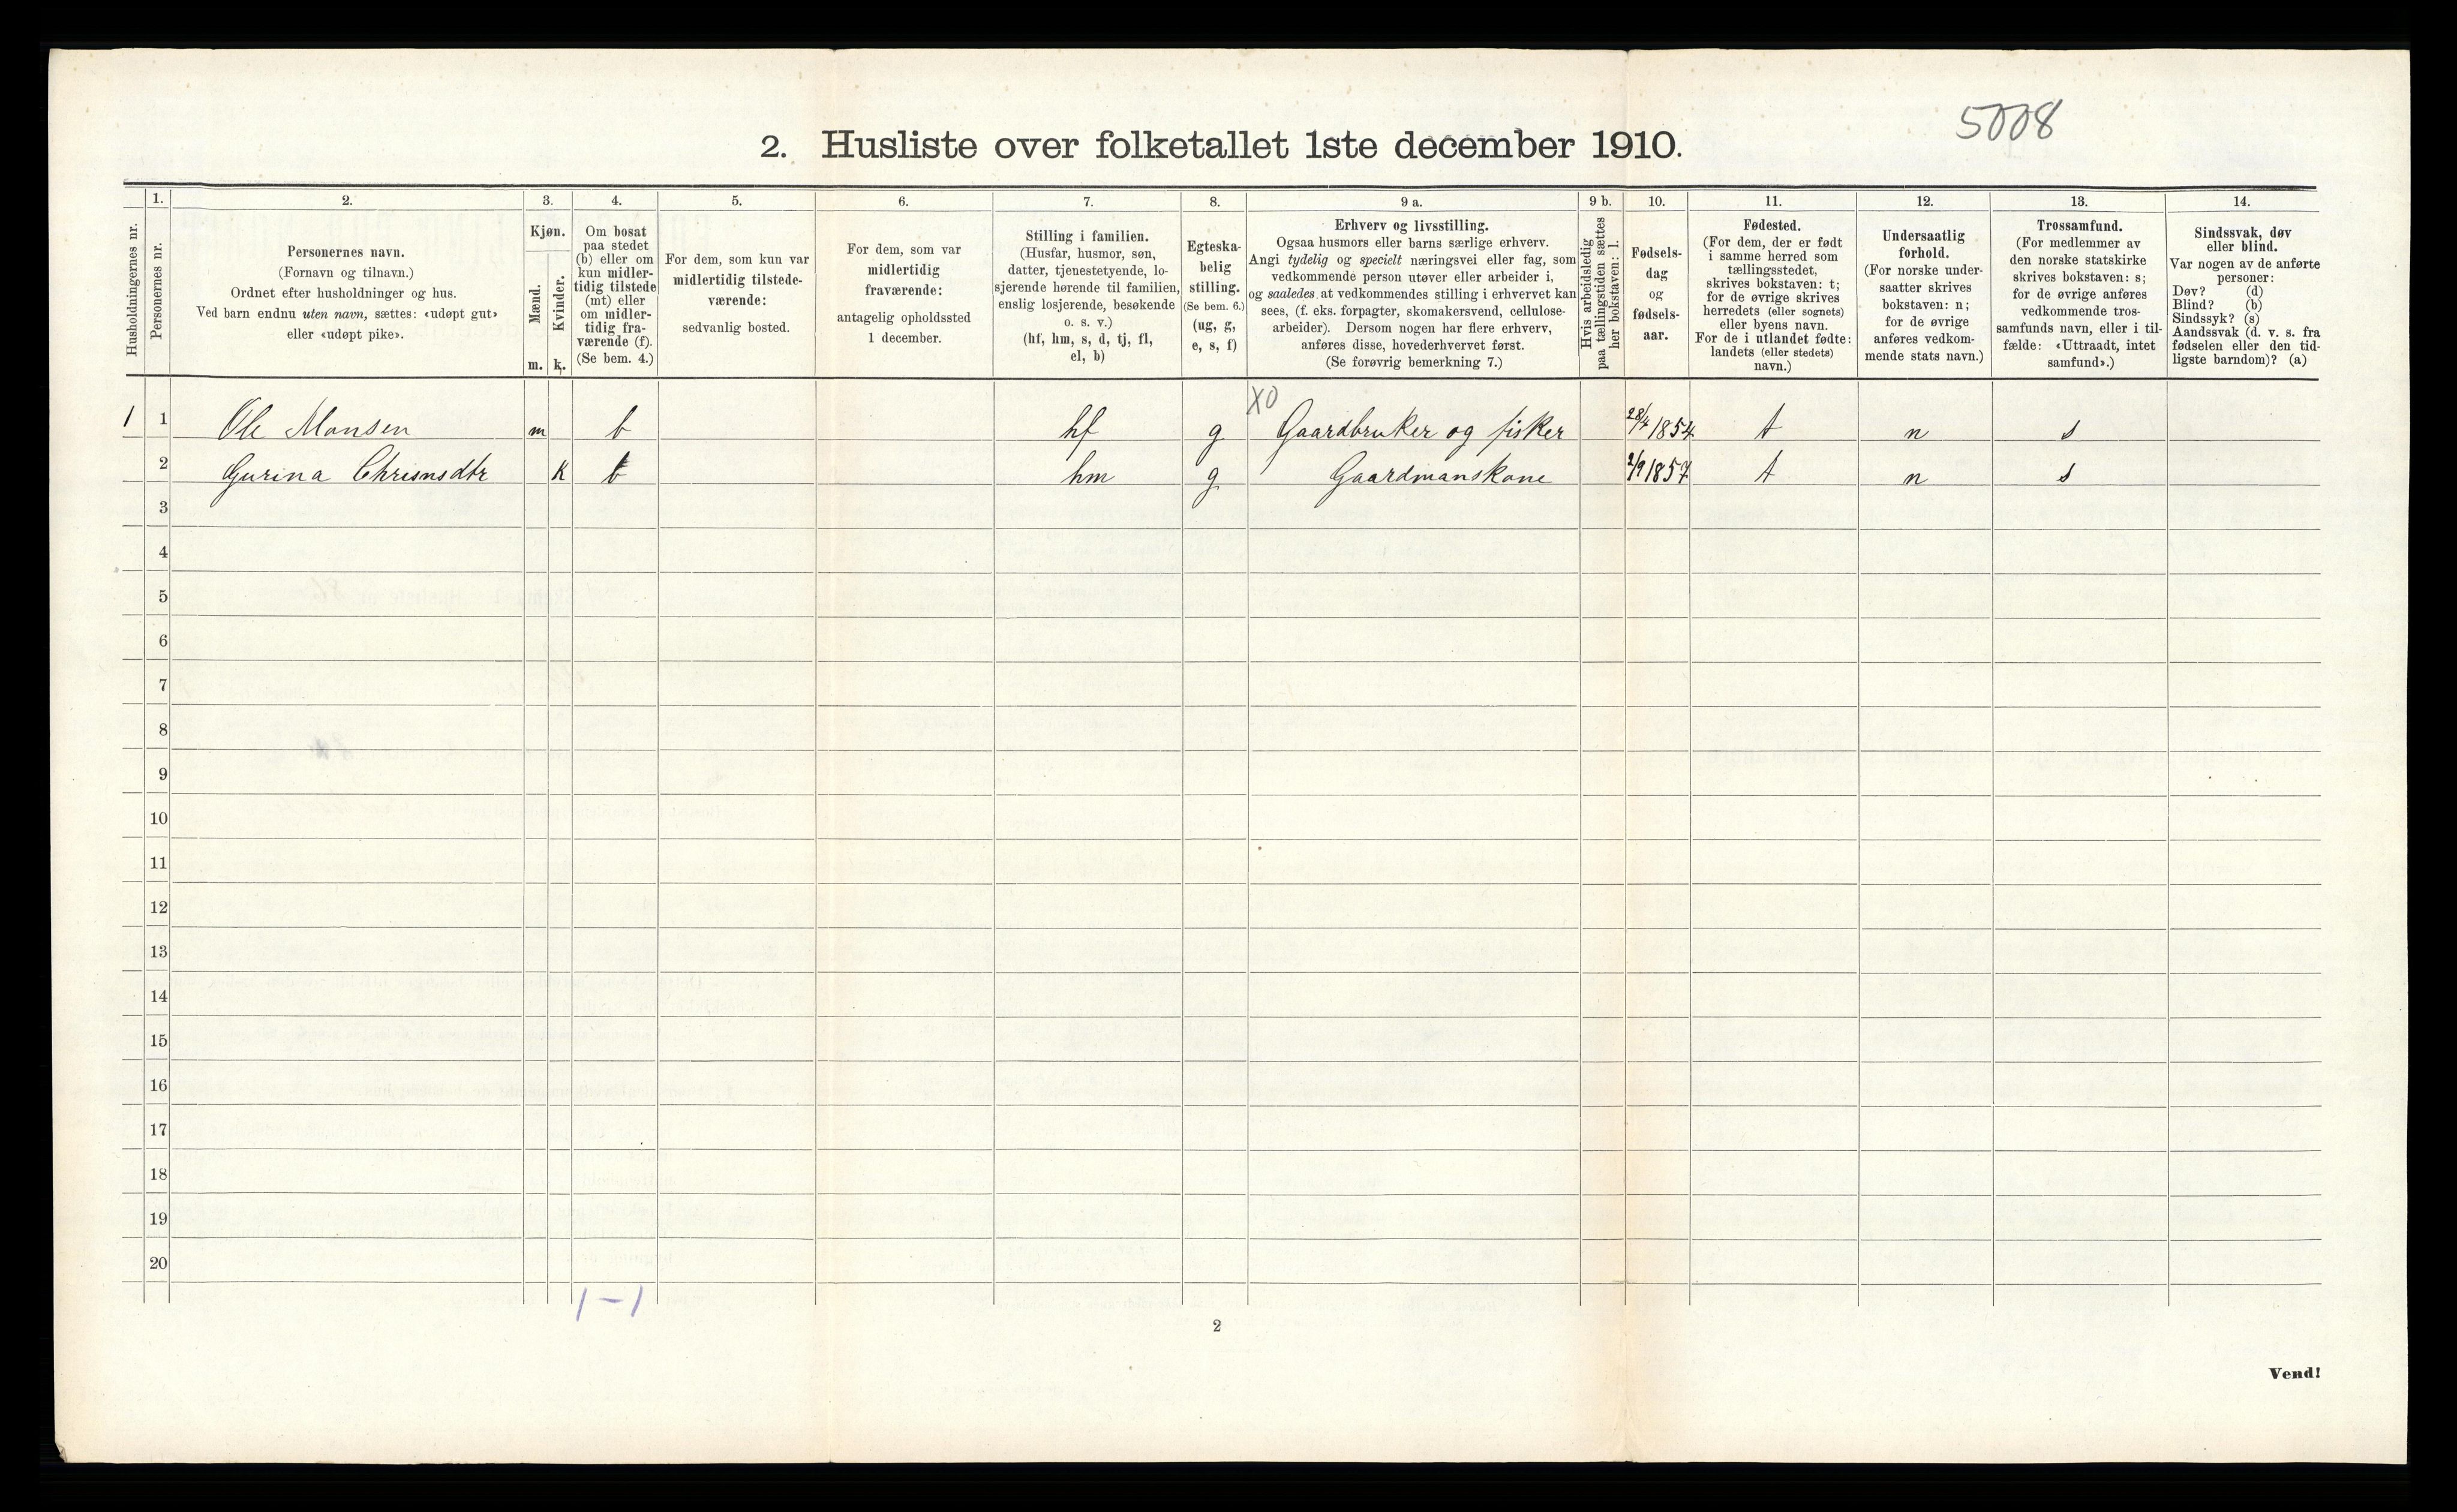 5008
2. Husliste over folketallet 1ste december 1910.
Husholdningernes nr.
1.
Personernes nr.
2.
Personernes navn.
(Fornavn og tilnavn.)
Ordnet efter husholdninger og hus.
Ved barn endnu uten navn, sættes: «udøpt gut»
eller «udøpt pike».
3.
Kjøn.
Mænd.
Kvinder.
m. k.
4.
Om bosat
paa stedet
(b) eller om
kun midler-
tidig tilstede
(mt) eller
om midler-
tidig fra-
værende (f).
(Se bem. 4.)
5.
For dem, som kun var
midlertidig tilstede-
værende:
sedvanlig bosted.
6.
For dem, som var
midlertidig
fraværende:
antagelig opholdssted
1 december.
7.
Stilling i familien.
(Husfar, husmor, søn,
datter, tjenestetyende, lo-
sjerende hørende til familien,
enslig losjerende, besøkende
o. s. v.)
(hf, hm, s, d, tj, fl,
el, b)
8.
Egteska-
belig
stilling.
(Se bem. 6.)
(ug, g,
e, s, f)
9 a.
Erhverv og livsstilling.
Ogsaa husmors eller barns særlige erhverv.
Angi tydelig og specielt næringsvei eller fag, som
vedkommende person utøver eller arbeider i,
og saaledes at vedkommendes stilling i erhvervet kan
sees, (f. eks. forpagter, skomakersvend, cellulose-
arbeider). Dersom nogen har flere erhverv,
anføres disse, hovederhvervet først.
(Se forøvrig bemerkning 7.)
9 b.
Hvis arbeidsledig
paa tællingstiden sættes
her bokstaven: l.
10.
Fødsels-
dag
og
fødsels-
aar.
11.
Fødested.
(For dem, der er født
i samme herred som
tællingsstedet,
skrives bokstaven: t;
for de øvrige skrives
herredets (eller sognets)
eller byens navn.
For de i utlandet fødte:
landets (eller stedets)
navn.)
12.
Undersaatlig
forhold.
(For norske under-
saatter skrives
bokstaven: n;
for de øvrige
anføres vedkom-
mende stats navn.)
13.
Trossamfund.
(For medlemmer av
den norske statskirke
skrives bokstaven: s;
for de øvrige anføres
vedkommende tros-
samfunds navn, eller i til-
fælde: «Uttraadt, intet
samfund».)
14.
Sindssvak, døv
eller blind.
Var nogen av de anførte
personer:
Døv? (d)
Blind? (b)
Sindssyk? (s)
Aandssvak (d. v. s. fra
fødselen eller den tid-
ligste barndom)? (a)
XO
1 1 Ole Monsen m b hf g Gaardbruker og fisker 28/4 1854 t n s
2 Gurina Chrisnsdtr k b hm g Gaardmanskone 2/9 1857 t n s
3
4
5
6
7
8
9
10
11
12
13
14
15
16
17
18
19
20
1 - 1
2
Vend!